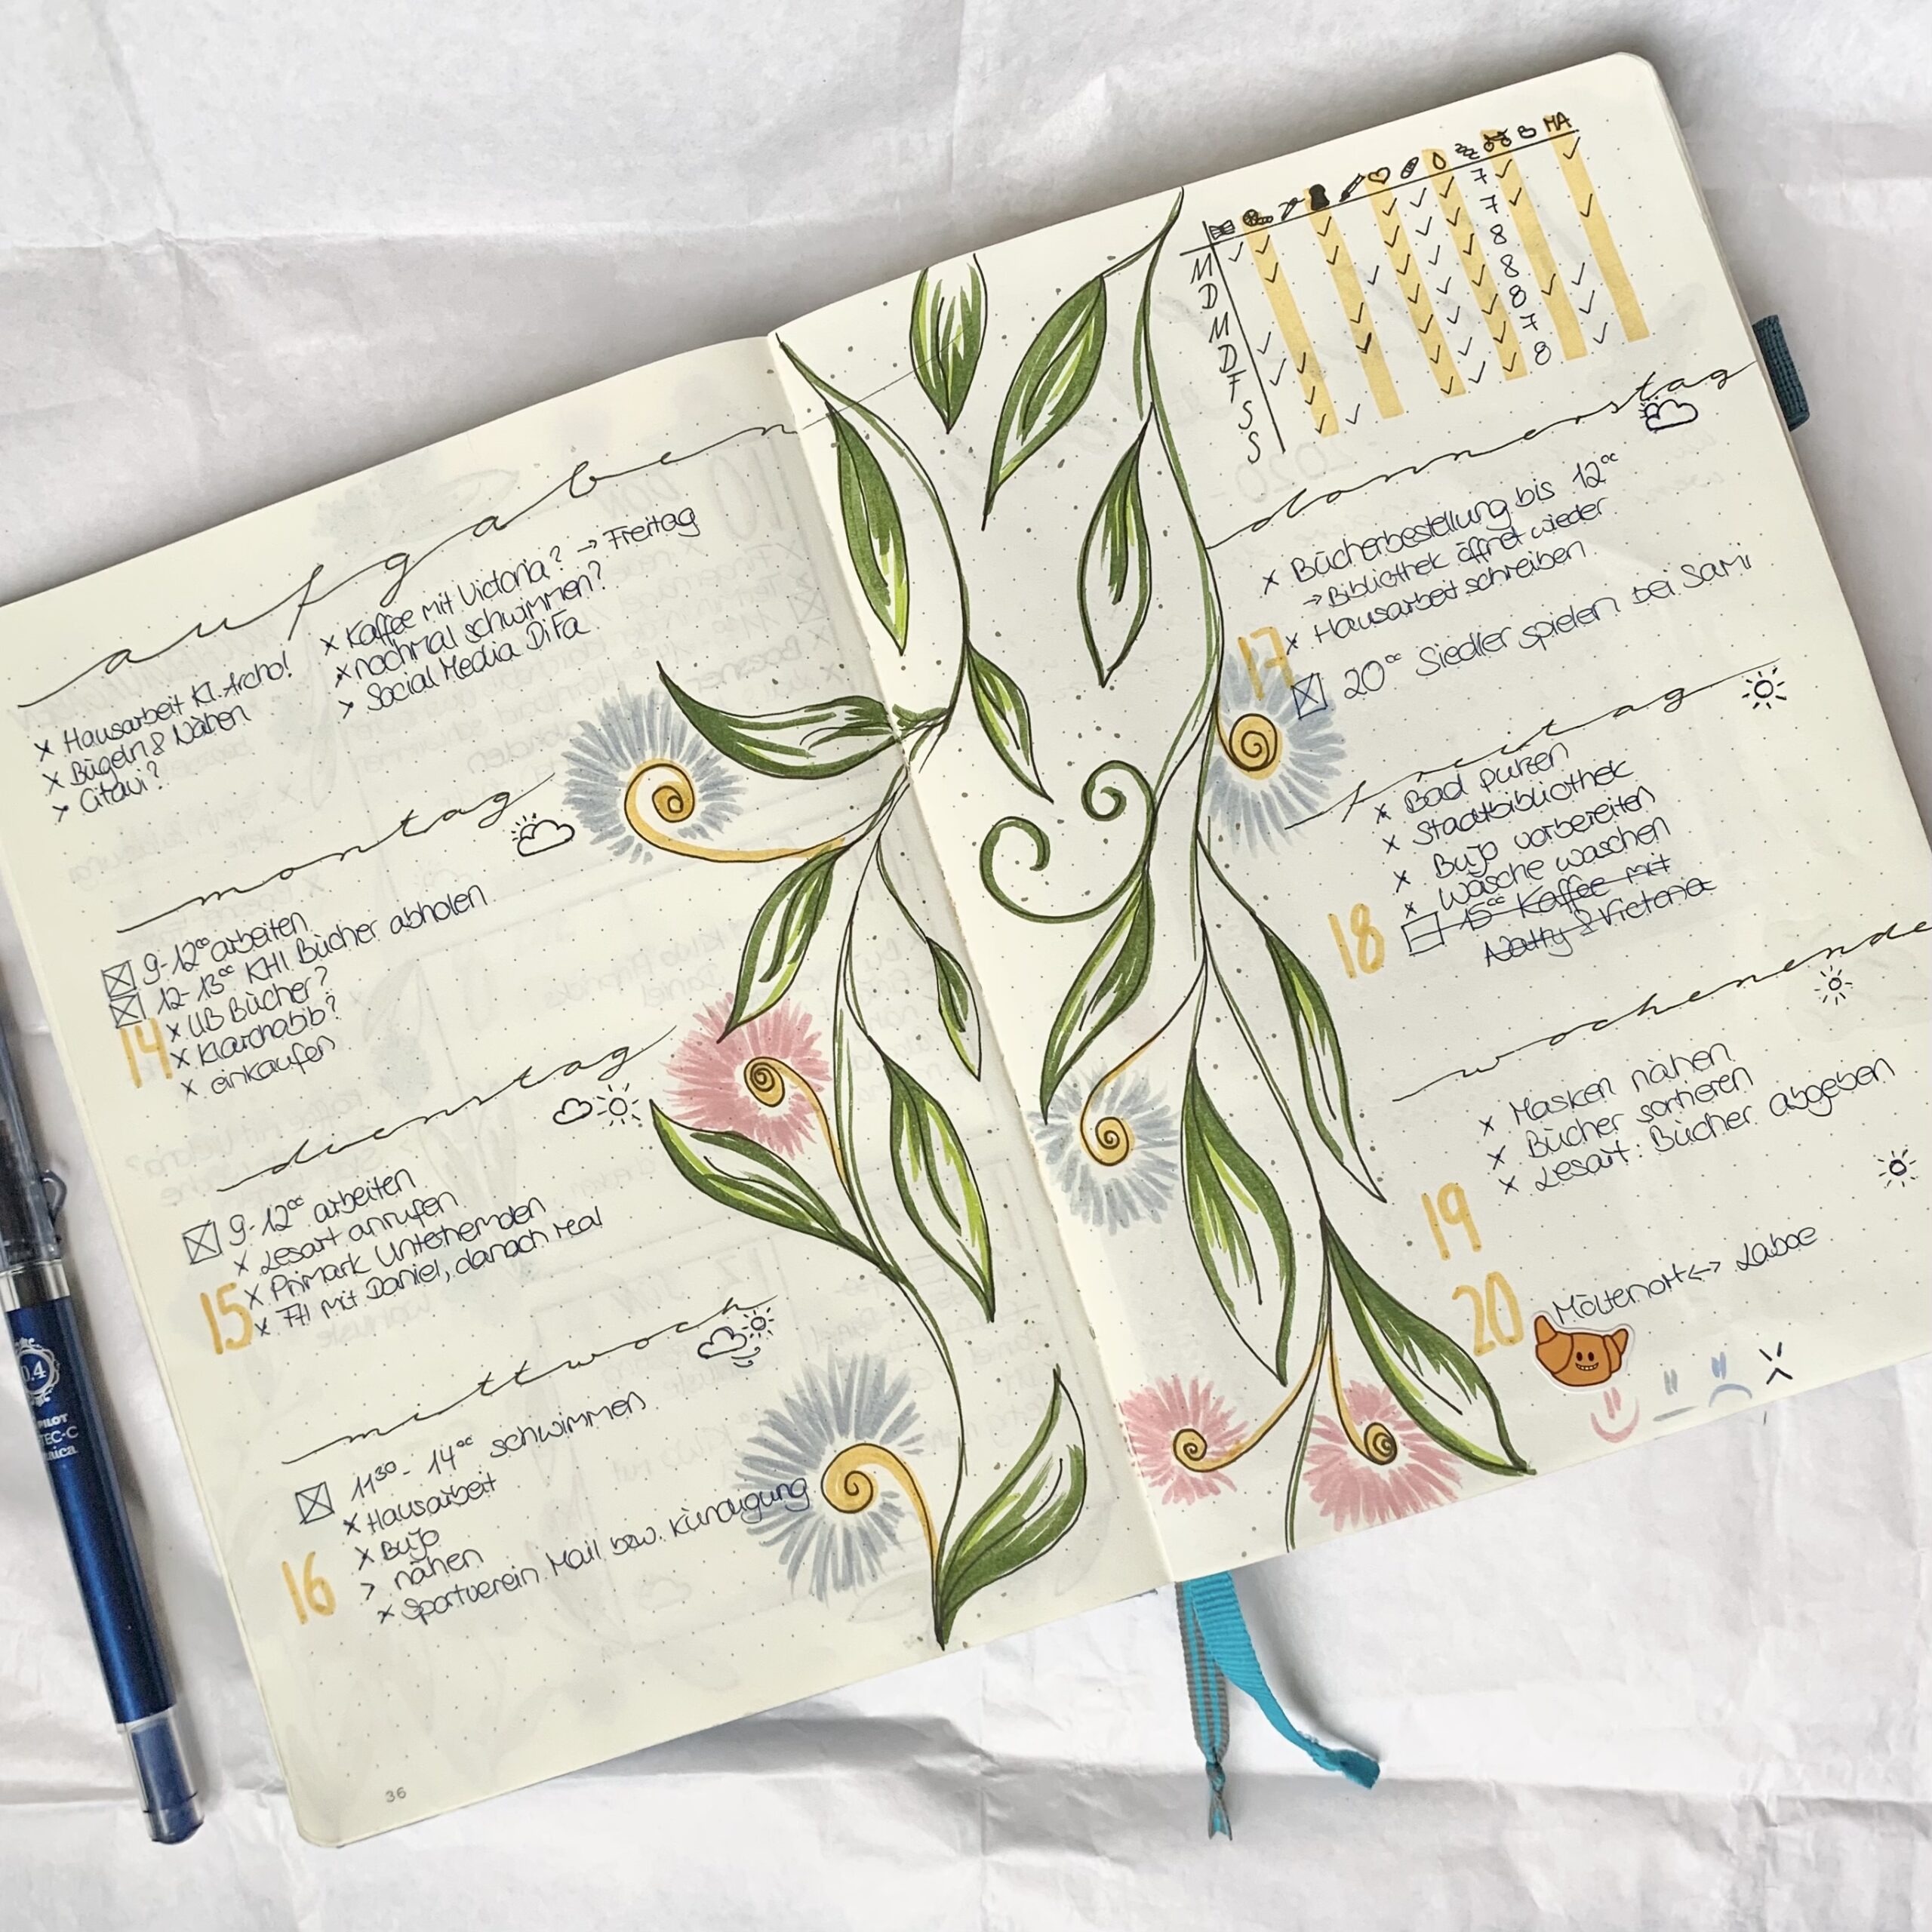 aufgaben
x Hausarbeit Kl. Archo!
x Bügeln & Nähen
> Citavi?
x Kaffee mit Victoria? → Freitag
x nochmal schwimmen?
> Social Media DiFa
montag
9-12°° arbeiten
12-13°° KHI Bücher abholen
14
x UB Bücher?
x Klarchobib?
x einkaufen
dienstag
9-12°° arbeiten
x Lesart anrufen
x Primark Unterhemden
15
x FH mit Daniel, danach real
mittwoch
11³⁰ - 14°° schwimmen
x Hausarbeit
x BuJo
16
> nähen
x Sportverein Mail bzw. Kündigung
36
MA
M
D
M
D
F
S
S
7
7
8
8
8
7
8
donnerstag
x Bücherbestellung bis 12°°
→ Bibliothek öffnet wieder
x Hausarbeit schreiben
17
20°° Siedler spielen bei Sami
freitag
x Bad putzen
x Stadtbibliothek
x BuJo vorbereiten
x Wäsche waschen
18
15°° Kaffee mit
Natty & Victoria
wochenende
x Masken nähen
x Bücher sortieren
x Lesart: Bücher abgeben
19
20
Möltenort <-> Laboe
0.4
PILOT
TEC-C